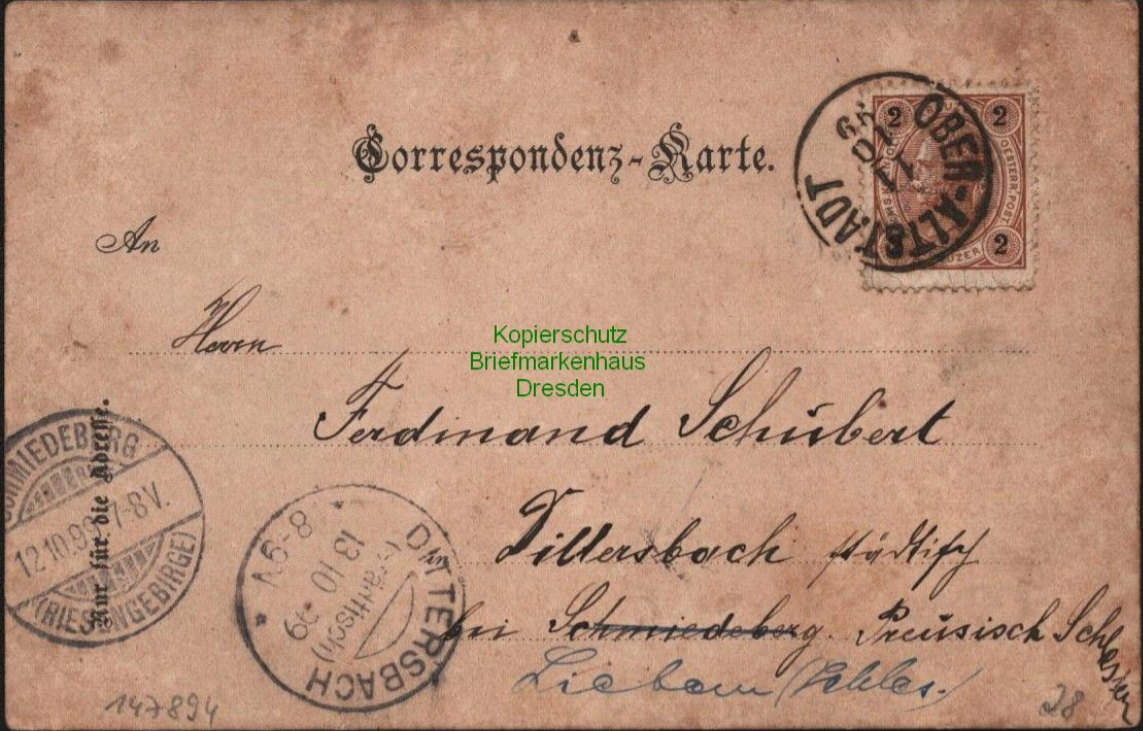 Correspondenz-Karte.
An
2 2
OESTERR. POST.
2
OBER-ALTSTADT
11
10
99
Herrn
Kopierschutz
Briefmarkenhaus
Dresden
Ferdinand Schubert
Nur für die Adresse.
SCHMIEDEBERG
12.10.99 7-8V.
(RIESENGEBIRGE)
DITTERSBACH
(städtisch)
13 10 99
8-9V
Dittersbach städtisch
bei Schmiedeberg. Preusisch Schlesien
Liebau (Schles.)
147894
28